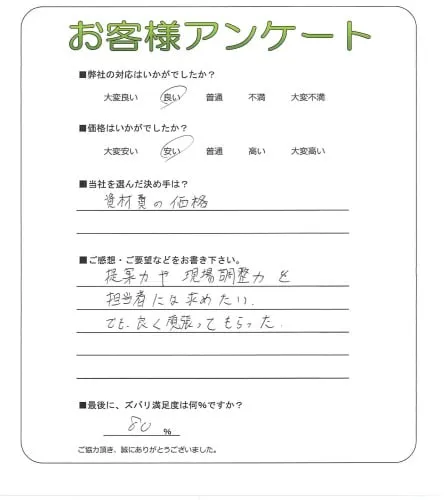 お客様アンケート
■弊社の対応はいかがでしたか?
大変良い 良い 普通 不満 大変不満
■価格はいかがでしたか?
大変安い 安い 普通 高い 大変高い
■当社を選んだ決め手は?
資材費の価格
■ご感想・ご要望などをお書き下さい。
提案力や現場調整力を
担当者には求めたい.
でも、良く頑張ってもらった.
■最後に、ズバリ満足度は何%ですか?
80 %
ご協力頂き、誠にありがとうございました。